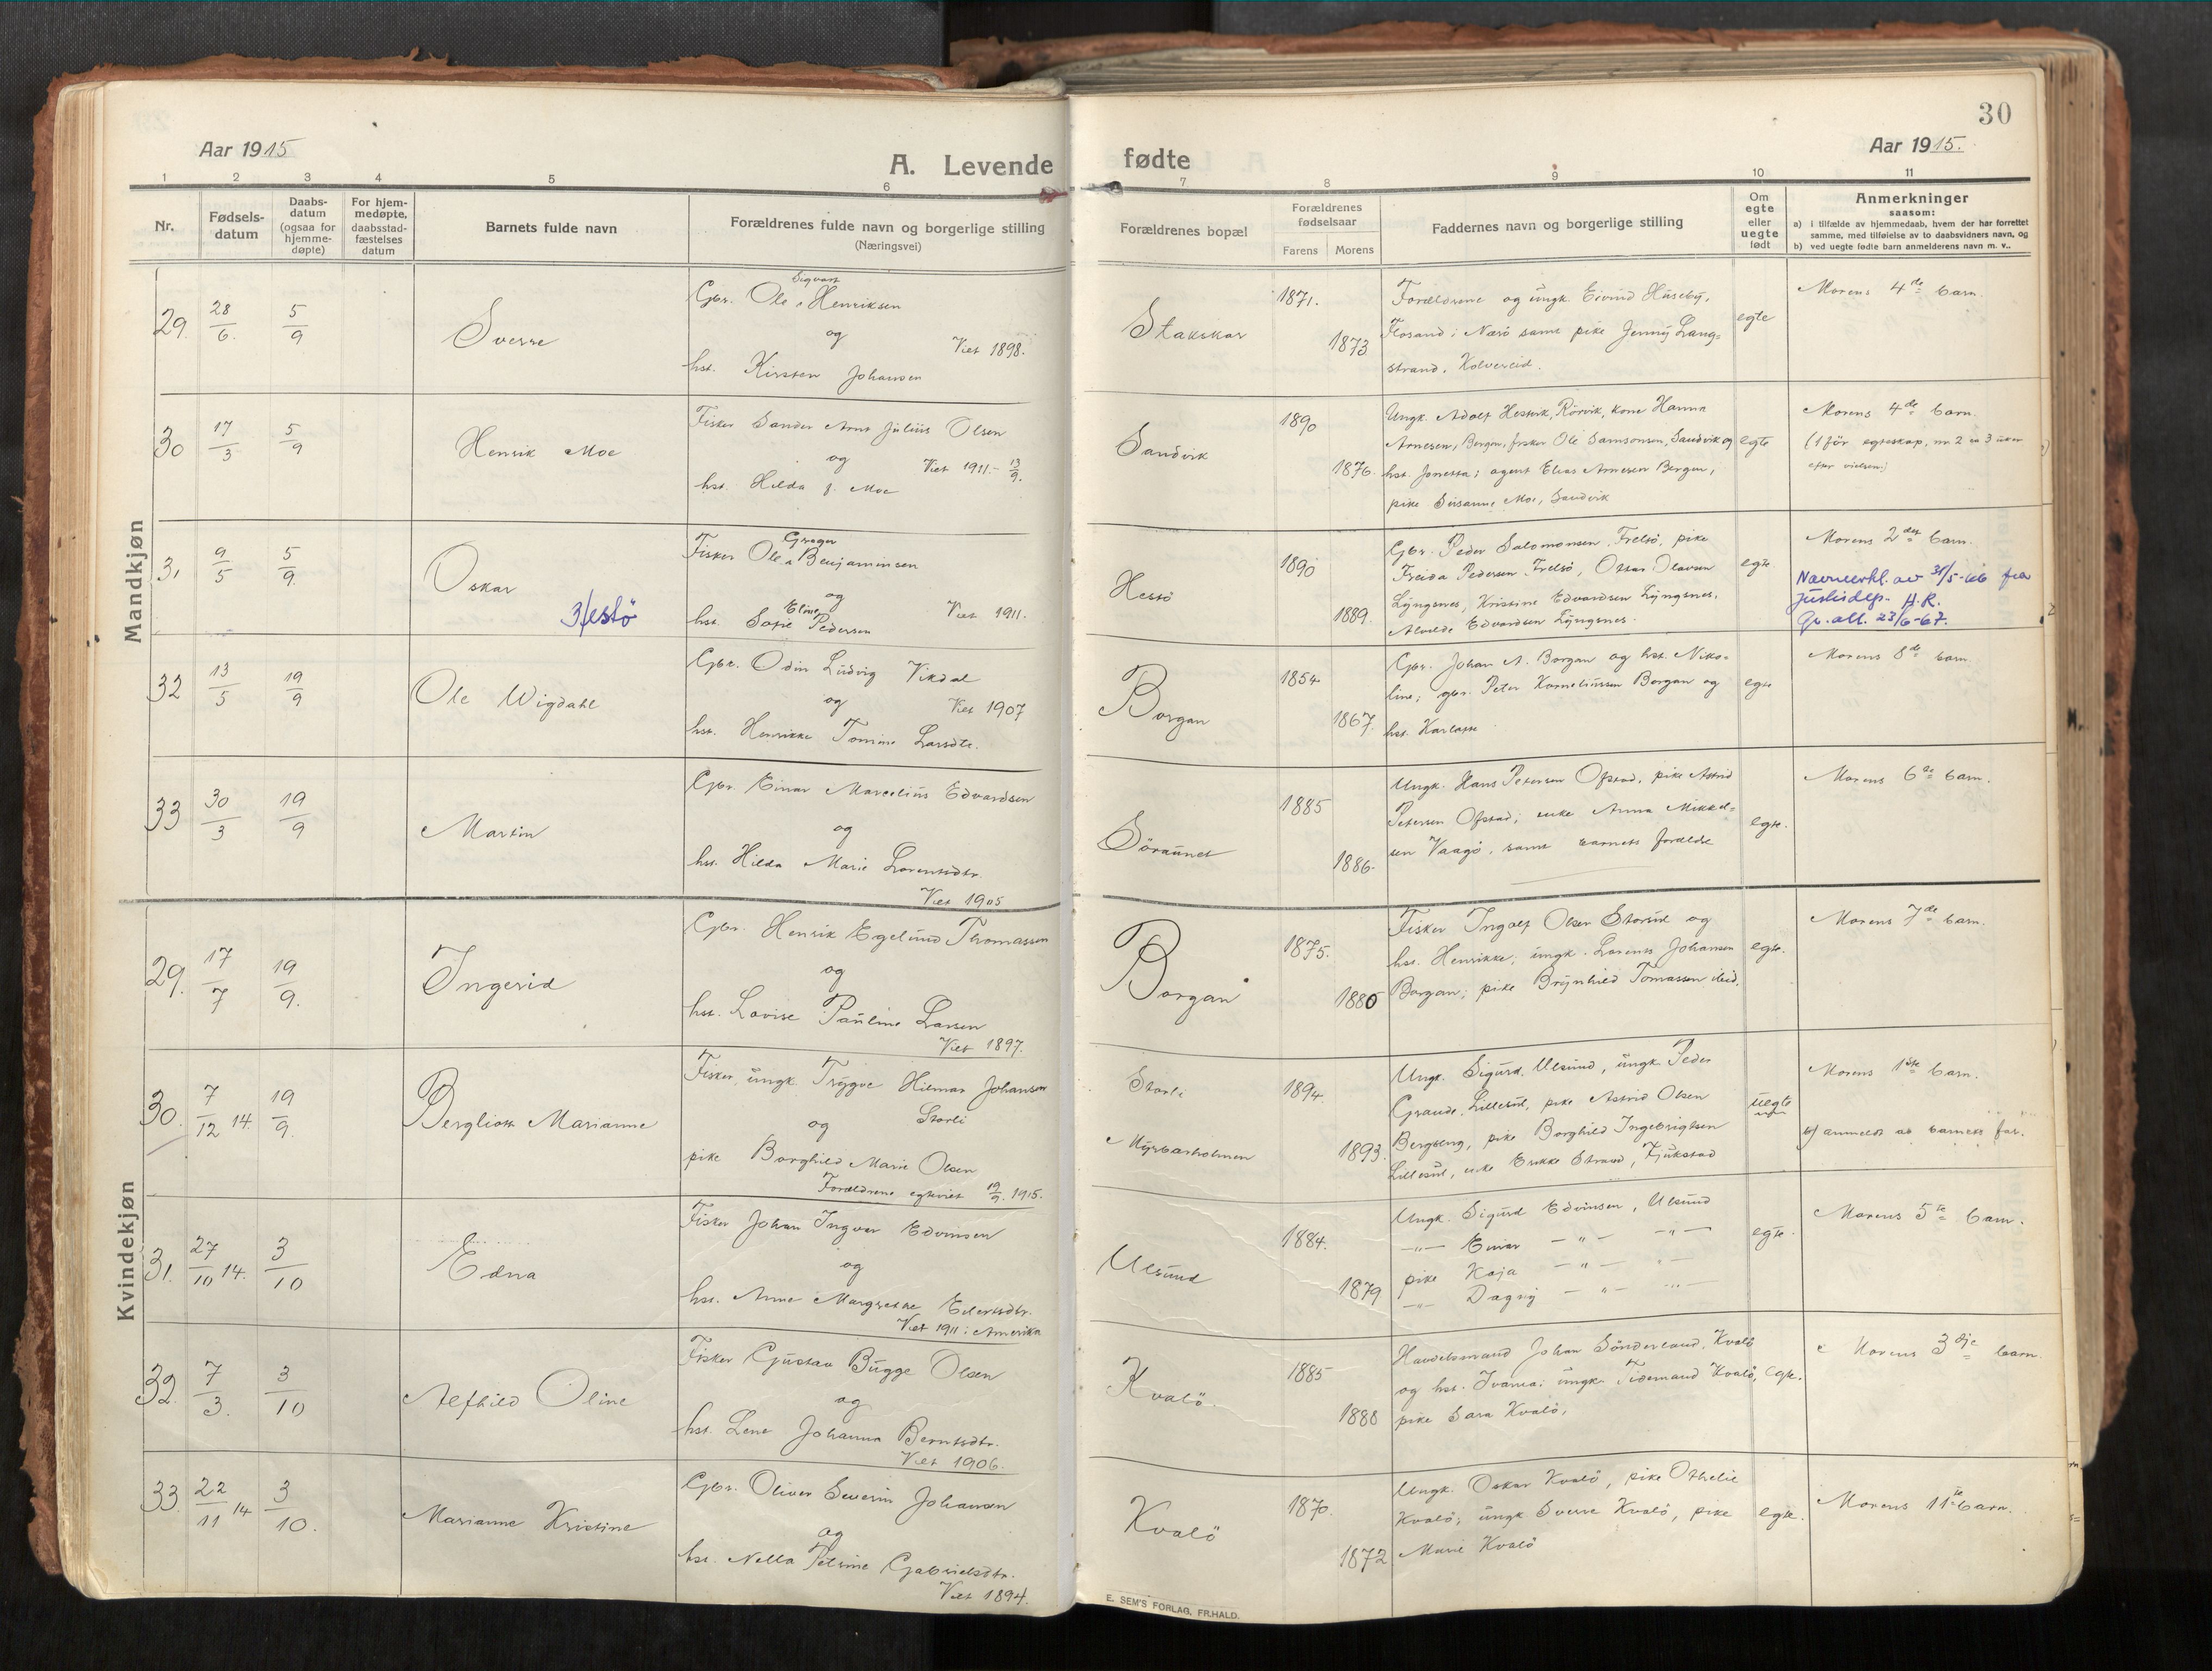 30
Aar 1915
A. Levende fødte
Aar 1915.
1 2 3 4 5 6 7 8 9 10 11
Nr.
Fødsels-
datum
Daabs-
datum
(ogsaa for
hjemme-
døpte)
For hjem-
medøpte,
daabsstad-
fæstelses
datum
Barnets fulde navn
Forældrenes fulde navn og borgerlige stilling
(Næringsvei)
Forældrenes bopæl
Forældrenes
fødselsaar
Farens Morens
Faddernes navn og borgerlige stilling
Om
egte
eller
uegte
født
Anmerkninger
saasom:
a) i tilfælde av hjemmedaab, hvem der har forrettet
samme, med tilføielse av to daabsvidners navn, og
b) ved uegte fødte barn anmelderens navn m. v..
Mandkjøn
29. 28/6. 5/9 Sverre
Gbr. Ole Sigvart Henriksen
og
Viet 1898.
hst. Kirsten Johansen
Stakskar
1871.
1873
Forældrene og ungk. Eivind Huseby,
Flosand i Nærö samt pike Jenny Lang=
strand, Kolvereid.
egte
Morens 4de barn.
30 17/3 5/9 Henrik Moe
Fisker Sander Arnt Julius Olsen
og
Viet 1911.- 13/9.
hst. Hilda f. Moe
Sandvik
1890
1876.
Ungk. Adolf Hestvik, Rörvik, kone Hanna
Arnesen, Bergen, fisker Ole Samsonsen, Sandvik og
hst. Jonetta; agent Elias Arnesen Bergen,
pike Susanne Moe, Sandvik
egte
Morens 4de barn.
(1 för egteskap, nr. 2 ca 3 uker
efter vielsen)
31 9/5 5/9. Oskar
Hestö
Fisker Ole Greger Benjaminsen
og
Viet 1911.
hst. Sofie Eline Pedersen
Hestö
1890
1889.
Gbr. Peder Salomonsen, Frelsö, pike
Freida Pedersen Frelsö, Ottar Olavsen
Lyngsnes, Kristine Edvardsen Lyngsnes,
Alvilde Edvardsen Lyngsnes.
egte
Morens 2det barn.
Navneerkl. av 31/5-66 fra
Justisdep. H.R.
Gr. all. 23/6-67.
32 13/5 19/9 Ole Wigdahl
Gbr. Odin Ludvig Vikdal
og
Viet 1907
hst. Henrikke Tomine Larsdtr.
Borgan
1854.
1867.
Gbr. Johan A. Borgan og hst. Niko=
line; gbr. Peter Korneliussen Borgan og
hst. Karlotte
egte
Morens 8de barn.
33 30/3 19/9 Martin
Gbr. Einar Marcelius Edvardsen
og
hst. Hilda Marie Lorentsdtr.
Viet 1905
Söraunet
1885
1886.
Ungk. Hans Petersen Ofstad, pike Astrid
Petersen Ofstad; enke Anna Mikkel=
sen Vaagö, samt barnets foreldre
egte.
Morens 6te barn.
Kvindekjøn
29. 17/7 19/9. Ingerid
Gbr. Henrik Egelund Thomassen
og
hst. Lovise Pauline Larsen
Viet 1897.
Borgan
1875.
1880
Fisker Ingolf Olsen Storsul og
hst. Henrikke; ungk. Lorents Johansen
Borgan; pike Brynhild Tomassen ibid.
egte.
Morens 7de barn.
30. 7/12 14. 19/9. Bergliott Marianne
Fisker, ungk. Trygve Hilmar Johansen
Storli
og
pike Borghild Marie Olsen
Forældrene egteviet 19/9. 1915.
Storli
Myrbærholmen
1894.
1893.
Ungk. Sigurd Ulsund, ungk. Peder
Grande, Lillesul, pike Astrid Olsen
Bergseng, pike Borghild Ingebrigtsen
Lillesul, enke Erikke Strand,
uegte
Morens 1ste barn.
b) anmeldt av barnets far.
31. 27/10 14. 3/10 Edna
Fisker Johan Ingvar Edvinsen
og
hst. Anne Margrethe Edertsdtr.
Viet 1911 i Amerika
Ulsund
1884.
1879
Ungk. Sigurd Edvinsen, Ulsund
—"— Einar —"— —"—
pike Kaja —"— —"—
—"— Dagny —"— —"—
egte.
Morens 5te barn.
32. 7/3. 3/10 Alfhild Oline
Fisker Gustav Bugge Olsen
og
hst. Lene Johanna Berntsdtr.
Viet 1906.
Kvalö.
1885
1888
Handelsmand Johan Sönderland, Kvalö
og hst. Ivania; ungk. Tidemand Kvalö,
pike Sara Kvalö,
egte.
Morens 3dje barn.
33. 22/11 14 3/10. Marianne Kristine
Gbr. Oliver Severin Johansen
og
hst. Nella Petrine Gabrielsdtr.
Viet 1894.
Kvalö
1870.
1872
Ungk. Oskar Kvalö, pike Othelie
Kvalö; ungk Sverre Kvalö, pike
Marie Kvalö
egte.
Morens 11te barn.
E. SEM'S FORLAG, FR.HALD.